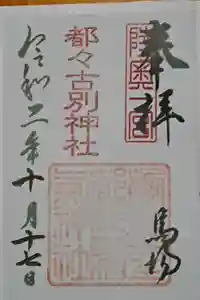 奉拝
陸奥一宮
都々古別神社
馬場
令和二年十月十七日